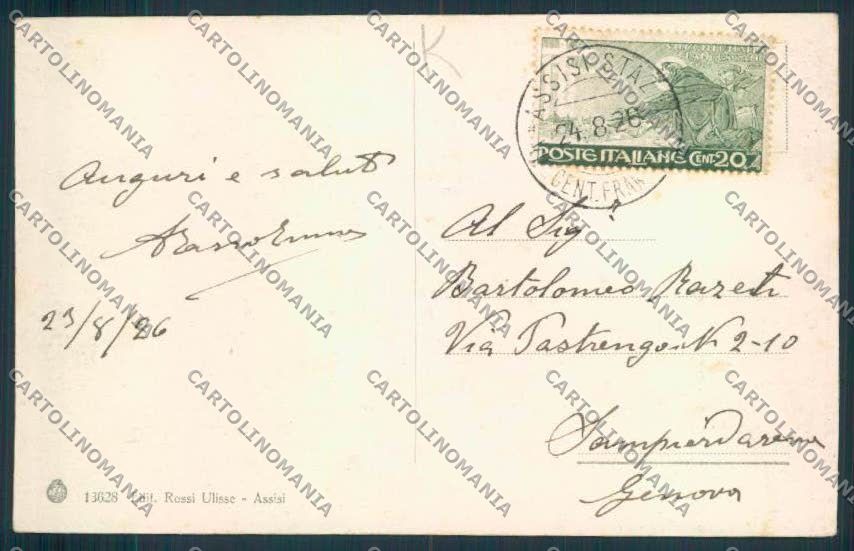 K
ASSISI STA
24.8.26
CENT. FRAN
POSTE ITALIANE CENT. 20
Auguri e saluti
23/8/26
Al Sigr
Bartolomeo Razeti
Via Pastrengo N 2-10
Sampierdarena
Genova
13628 Edit. Rossi Ulisse - Assisi
CARTOLINOMANIA